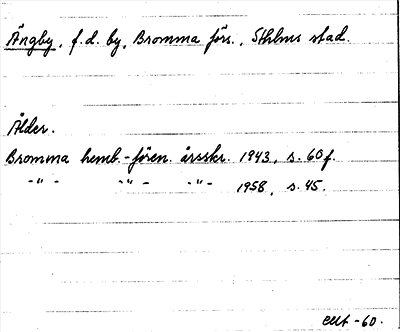 Ängby, f.d. by, Bromma förs., Sthlms stad.
Ålder.
Bromma hemb.-fören. årsskr. 1943, s. 60 f.
-"- -"- -"- 1958, s. 45.
-60.